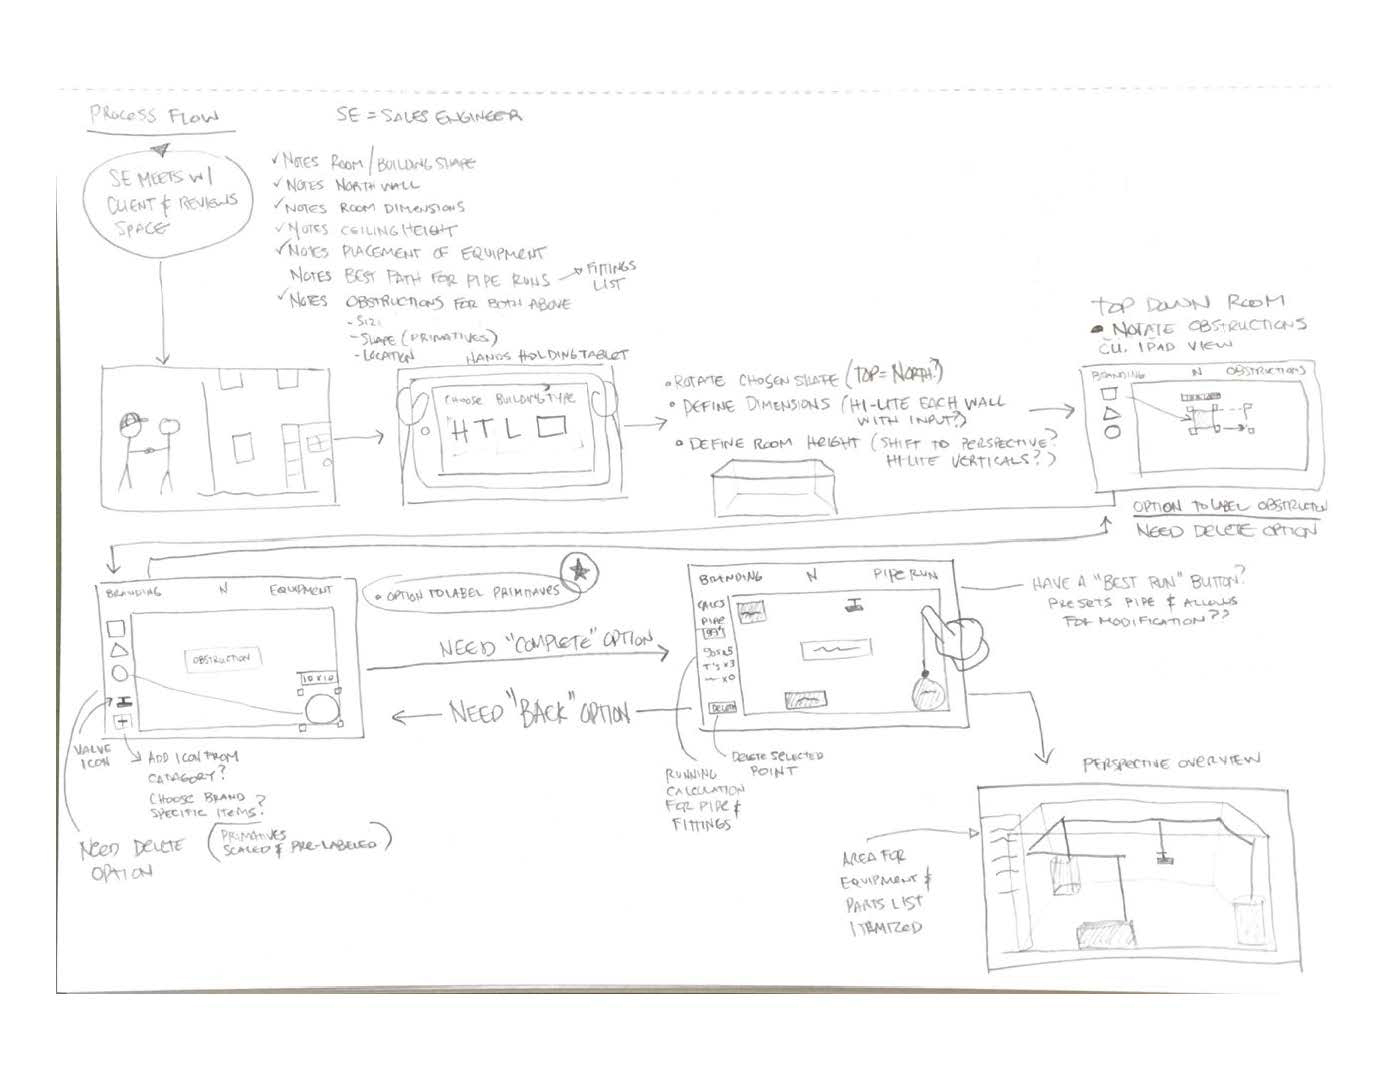 PROCESS FLOW
SE = SALES ENGINEER
SE MEETS W/
CLIENT & REVIEWS
SPACE
✓NOTES ROOM/BUILDING SHAPE
✓NOTES NORTH WALL
✓NOTES ROOM DIMENSIONS
✓NOTES CEILING HEIGHT
✓NOTES PLACEMENT OF EQUIPMENT
NOTES BEST PATH FOR PIPE RUNS → FITTINGS
LIST
✓NOTES OBSTRUCTIONS FOR BOTH ABOVE
- SIZE
- SHAPE (PRIMATIVES)
- LOCATION
HANDS HOLDING TABLET
CHOOSE BUILDING TYPE
H T L
• ROTATE CHOSEN SHAPE (TOP = NORTH?)
• DEFINE DIMENSIONS (HI-LITE EACH WALL
WITH INPUT?)
• DEFINE ROOM HEIGHT (SHIFT TO PERSPECTIVE?
HI-LITE VERTICALS?)
TOP DOWN ROOM
• NOTATE OBSTRUCTIONS
C.U. IPAD VIEW
BRANDING N OBSTRUCTIONS
OPTION TO LABEL OBSTRUCTION
NEED DELETE OPTION
BRANDING N EQUIPMENT
OBSTRUCTION
10 x 10
VALVE
ICON
ADD ICON FROM
CATAGORY?
CHOOSE BRAND
SPECIFIC ITEMS?
NEED DELETE
OPTION
(PRIMATIVES
SCALED & PRE-LABELED)
• OPTION TO LABEL PRIMATIVES
NEED "COMPLETE" OPTION
NEED "BACK" OPTION
BRANDING N PIPE RUN
CALCS
PIPE
99'
90s x5
T's x3
x0
DELETE
DELETE SELECTED
POINT
RUNNING
CALCULATION
FOR PIPE &
FITTINGS
HAVE A "BEST RUN" BUTTON?
PRESETS PIPE & ALLOWS
FOR MODIFICATION??
PERSPECTIVE OVERVIEW
AREA FOR
EQUIPMENT &
PARTS LIST
ITEMIZED